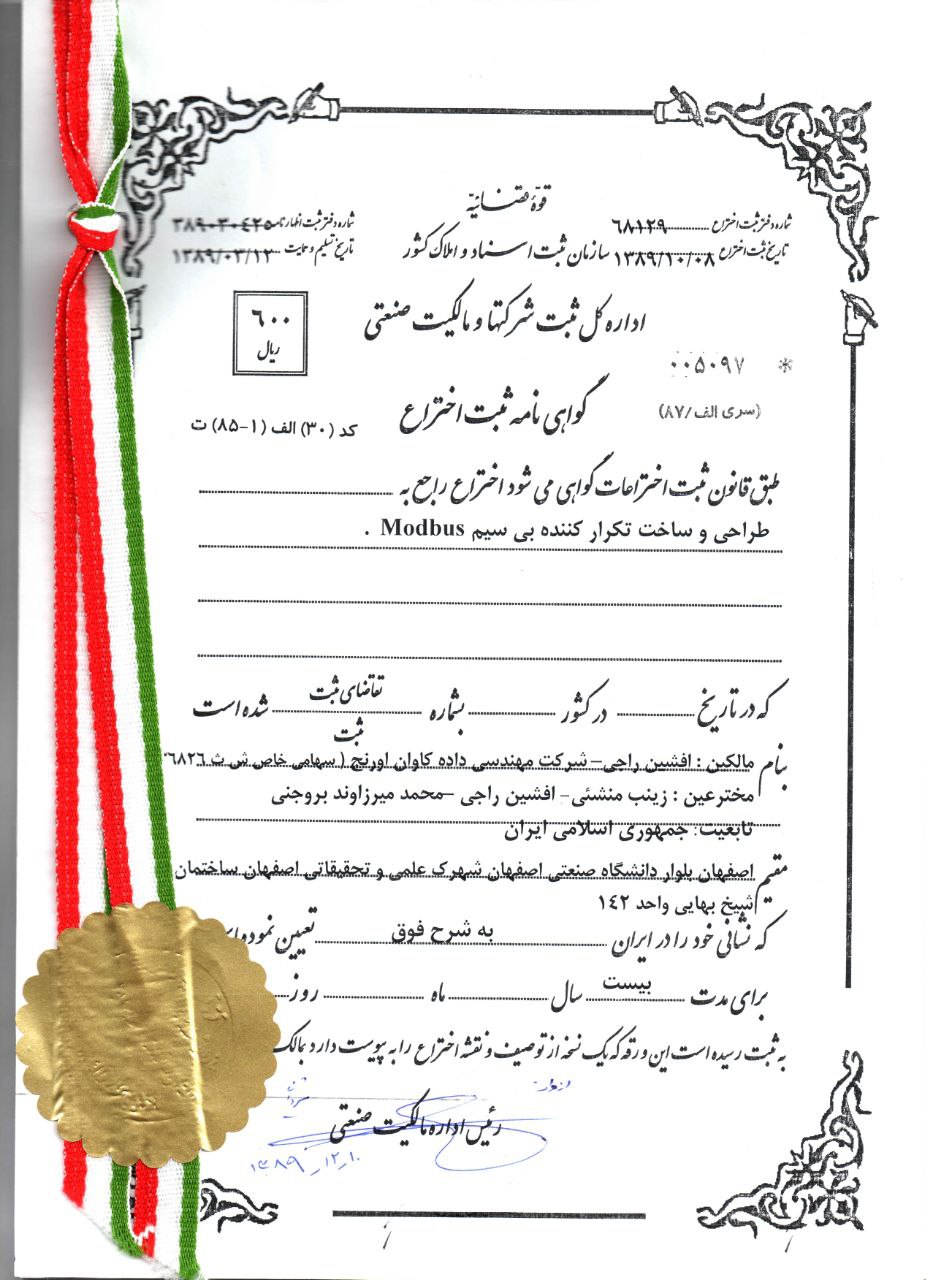 قوّهٔ قضائیّه
شماره دفتر ثبت اختراع ۶۸۱۲۹
شماره دفتر ثبت اظهارنامه ۳۸۹۰۳۰۴۲۵
تاریخ ثبت اختراع ۱۳۸۹/۱۰/۰۸
سازمان ثبت اسناد و املاک کشور
تاریخ تسلیم و حمایت ۱۳۸۹/۰۳/۱۲
اداره کل ثبت شرکتها و مالکیت صنعتی
۶۰۰
ریال
* ۰۰۵۰۹۷
(سری الف/۸۷)
گواهی نامه ثبت اختراع
کد (۳۰) الف (۱-۸۵) ت
طبق قانون ثبت اختراعات گواهی می شود اختراع راجع به
طراحی و ساخت تکرار کننده بی سیم Modbus .
که در تاریخ در کشور بشماره تقاضای ثبت شده است
ثبت
بنام مالکین : افشین راجی– شرکت مهندسی داده کاوان اورنج ( سهامی خاص ش ث ۶۸۲۶
مخترعین : زینب منشئی- افشین راجی –محمد میرزاوند بروجنی
تابعیت: جمهوری اسلامی ایران
مقیم اصفهان بلوار دانشگاه صنعتی اصفهان شهرک علمی و تحقیقاتی اصفهان ساختمان
شیخ بهایی واحد ۱۴۲
که نشانی خود را در ایران به شرح فوق تعیین نموده
برای مدت بیست سال ماه روز
به ثبت رسیده است این ورقه که یک نسخه از توصیف و نقشه اختراع را به پیوست دارد بمالک
رئیس اداره مالکیت صنعتی
۱۳۸۹_۱۲_۱۰